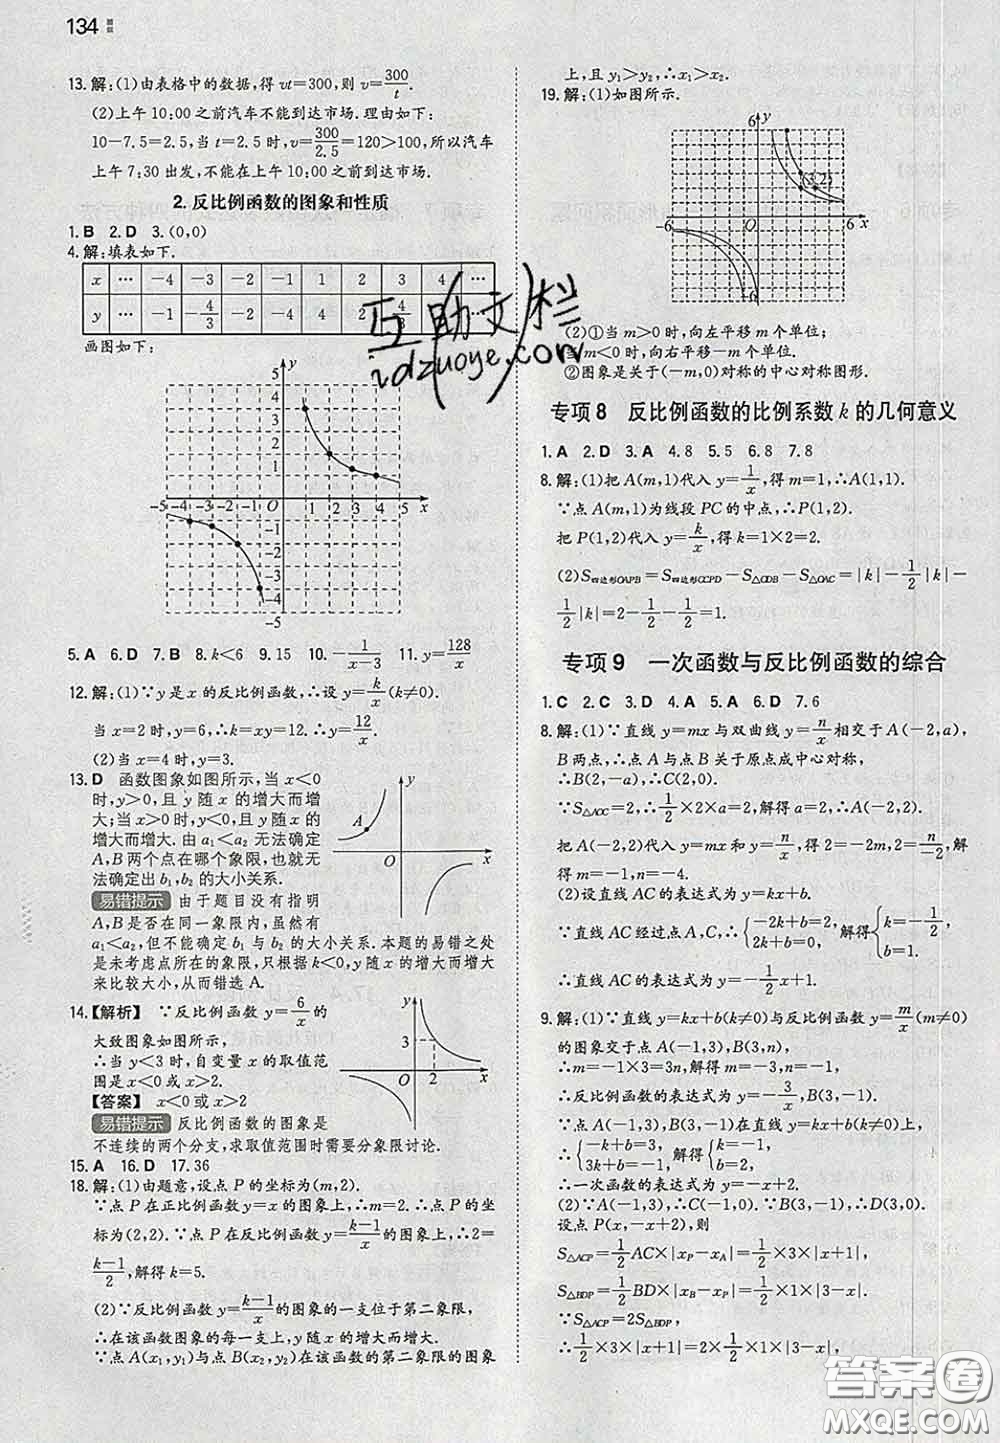 134
13.解:(1)由表格中的数据,得 vt=300,则 v=300/t.
(2)上午 10:00 之前汽车不能到达市场.理由如下:
10-7.5=2.5,当 t=2.5 时,v=300/2.5=120>100,所以汽车
上午 7:30 出发,不能在上午 10:00 之前到达市场.
2.反比例函数的图象和性质
1.B 2.D 3.(0,0)
4.解:填表如下.
x … -4 -3 -2 -1 1 2 3 4 …
y … -1 -4/3 -2 -4 4 2 4/3 1 …
画图如下:
5.A 6.D 7.B 8.k<6 9.15 10.-1/(x-3) 11.y=128/x
12.解:(1)∵y是 x 的反比例函数,∴设 y=k/x(k≠0).
当 x=2 时,y=6,∴k=xy=12.∴y=12/x.
(2)当 x=4 时,y=3.
13.D 函数图象如图所示,当 x<0
时,y>0,且 y 随 x 的增大而增
大;当 x>0 时,y<0,且 y 随 x 的
增大而增大.由 a₁<a₂ 无法确定
A,B 两个点在哪个象限,也就无
法确定出 b₁,b₂ 的大小关系.
易错提示 由于题目没有指明
A,B 是否在同一象限内,虽然有
a₁<a₂,但不能确定 b₁ 与 b₂ 的大小关系.本题的易错之处
是未考虑点所在的象限,只根据 k<0,y 随 x 的增大而增大
来比较大小,从而错选 A.
14.【解析】 ∵反比例函数 y=6/x 的
大致图象如图所示,
∴当 y<3 时,自变量 x 的取值范
围是 x<0 或 x>2.
【答案】 x<0 或 x>2
易错提示 反比例函数的图象是
不连续的两个分支,求取值范围时需要分象限讨论.
15.A 16.D 17.36
18.解:(1)由题意,设点 P 的坐标为(m,2).
∵点 P 在正比例函数 y=x 的图象上,∴m=2.∴点 P 的坐
标为(2,2).∵点 P 在反比例函数 y=(k-1)/x 的图象上,∴2=
(k-1)/2,解得 k=5.
(2)∵反比例函数 y=(k-1)/x 的图象的一支位于第二象限,
∴在该函数图象的每一支上,y 随 x 的增大而增大.
∵点 A(x₁,y₁)与点 B(x₂,y₂)在该函数的第二象限的图象
上,且 y₁>y₂,∴x₁>x₂.
19.解:(1)如图所示.
(3,2)
(2)①当 m>0 时,向左平移 m 个单位;
当 m<0 时,向右平移-m 个单位.
②图象是关于(-m,0)对称的中心对称图形.
专项 8 反比例函数的比例系数 k 的几何意义
1.A 2.D 3.A 4.8 5.5 6.8 7.8
8.解:(1)把 A(m,1)代入 y=1/x,得 m=1,∴A(1,1).
∵点 A(m,1)为线段 PC 的中点,∴P(1,2).
把 P(1,2)代入 y=k/x,得 k=1×2=2.
(2)S四边形OAPB=S四边形OCPD-S△ODB-S△OAC=|k|-1/2|k|-
1/2|k|=2-1/2-1/2=1.
专项 9 一次函数与反比例函数的综合
1.C 2.C 3.D 4.A 5.A 6.D 7.6
8.解:(1)∵直线 y=mx 与双曲线 y=n/x 相交于 A(-2,a),
B 两点,∴点 A 与点 B 关于原点成中心对称,
∴B(2,-a),∴C(2,0).
∵S△AOC=2,∴1/2×2×a=2,解得 a=2,∴A(-2,2).
把 A(-2,2)代入 y=mx 和 y=n/x,得 2=-2m,2=n/-2,解得
m=-1,n=-4.
(2)设直线 AC 的表达式为 y=kx+b.
∵直线 AC 经过点 A,C,∴{-2k+b=2, 2k+b=0, 解得{k=-1/2, b=1.
∴直线 AC 的表达式为 y=-1/2x+1.
9.解:(1)∵直线 y=kx+b(k≠0)与反比例函数 y=m/x(m≠0)
的图象交于点 A(-1,3),B(3,n),
∴m=-1×3=3n,∴m=-3,n=-1.
∴反比例函数的表达式为 y=-3/x,B(3,-1).
∵点 A(-1,3),B(3,-1)在直线 y=kx+b 上,
∴{-k+b=3, 3k+b=-1, 解得{k=-1, b=2.
∴一次函数的表达式为 y=-x+2.
(2)∵A(-1,3),∴C(-1,0).∵B(3,-1),∴D(3,0).
设点 P(x,-x+2),则
S△ACP=1/2AC×|xP-xA|=1/2×3×|x+1|,
S△BDP=1/2BD×|xB-xP|=1/2×1×|3-x|.
∵S△ACP=2S△BDP,
∴1/2×3×|x+1|=2×1/2×1×|3-x|,
互助文栏
idzuoye.com
答案圈
MXQE.COM